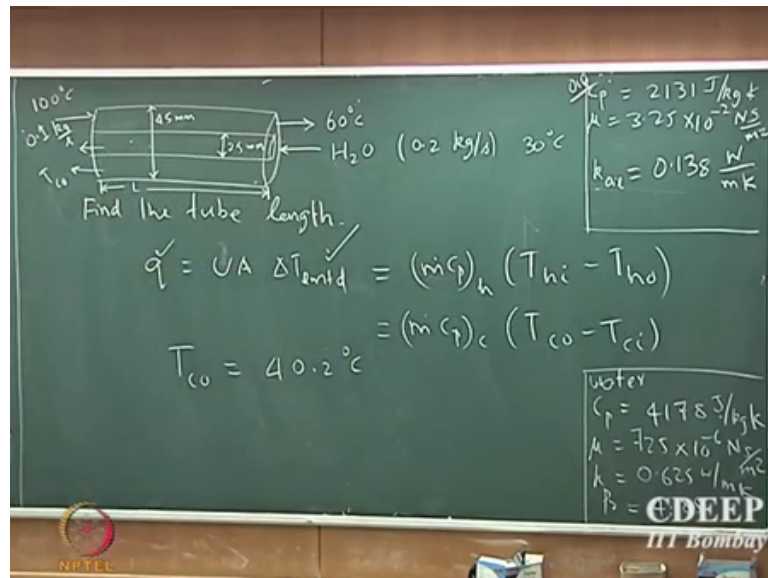 100°C
0.1 kg/s
T_co
45mm
25mm
L
60°C
H₂O (0.2 kg/s) 30°C
Find the tube length.
q = U A ΔT_lmtd = (ṁ Cp)_h (T_hi - T_ho)
= (ṁ Cp)_c (T_co - T_ci)
T_co = 40.2°C
Oil Cp = 2131 J/kg K
μ = 3.25 × 10⁻² NS/m²
k = 0.138 W/mK
water
Cp = 4178 J/kg K
μ = 725 × 10⁻⁶ NS/m²
k = 0.625 W/mK
NPTEL
CDEEP
IIT Bombay